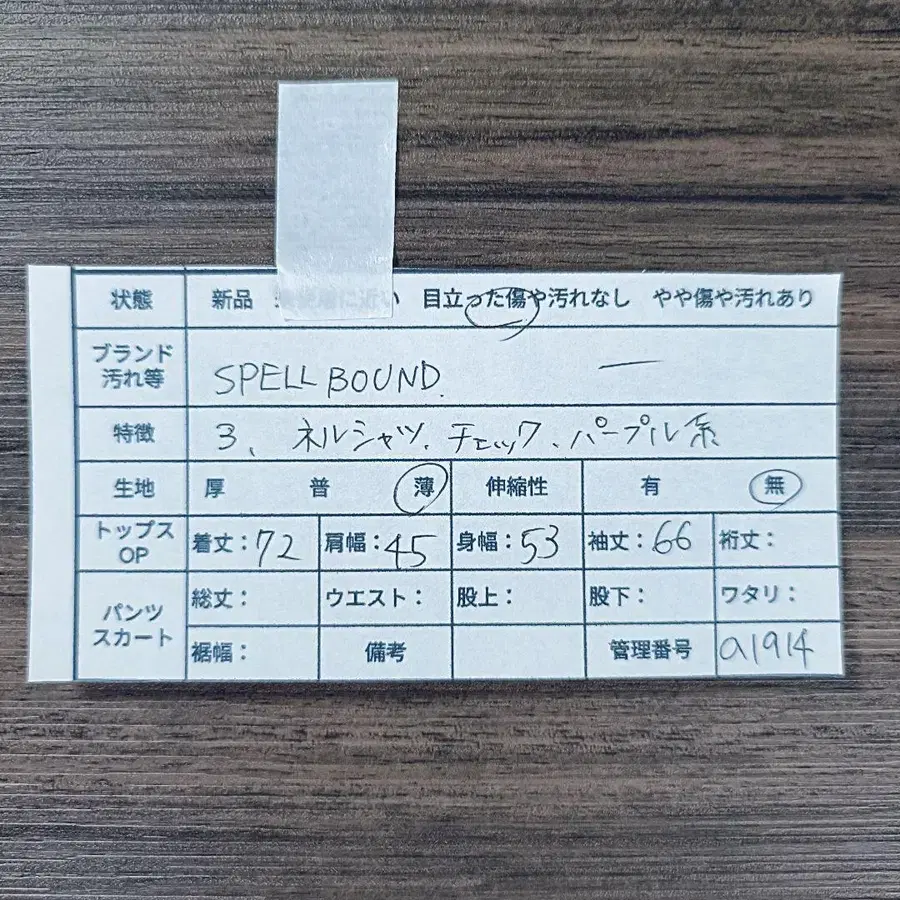 状態 新品 未使用に近い 目立った傷や汚れなし やや傷や汚れあり
ブランド
汚れ等
SPELL BOUND. ー
特徴 3、ネルシャツ、チェック、パープル系
生地 厚 普 薄 伸縮性 有 無
トップス
OP
着丈:72 肩幅:45 身幅:53 袖丈:66 裄丈:
パンツ
スカート
総丈: ウエスト: 股上: 股下: ワタリ:
裾幅: 備考 管理番号 a1914